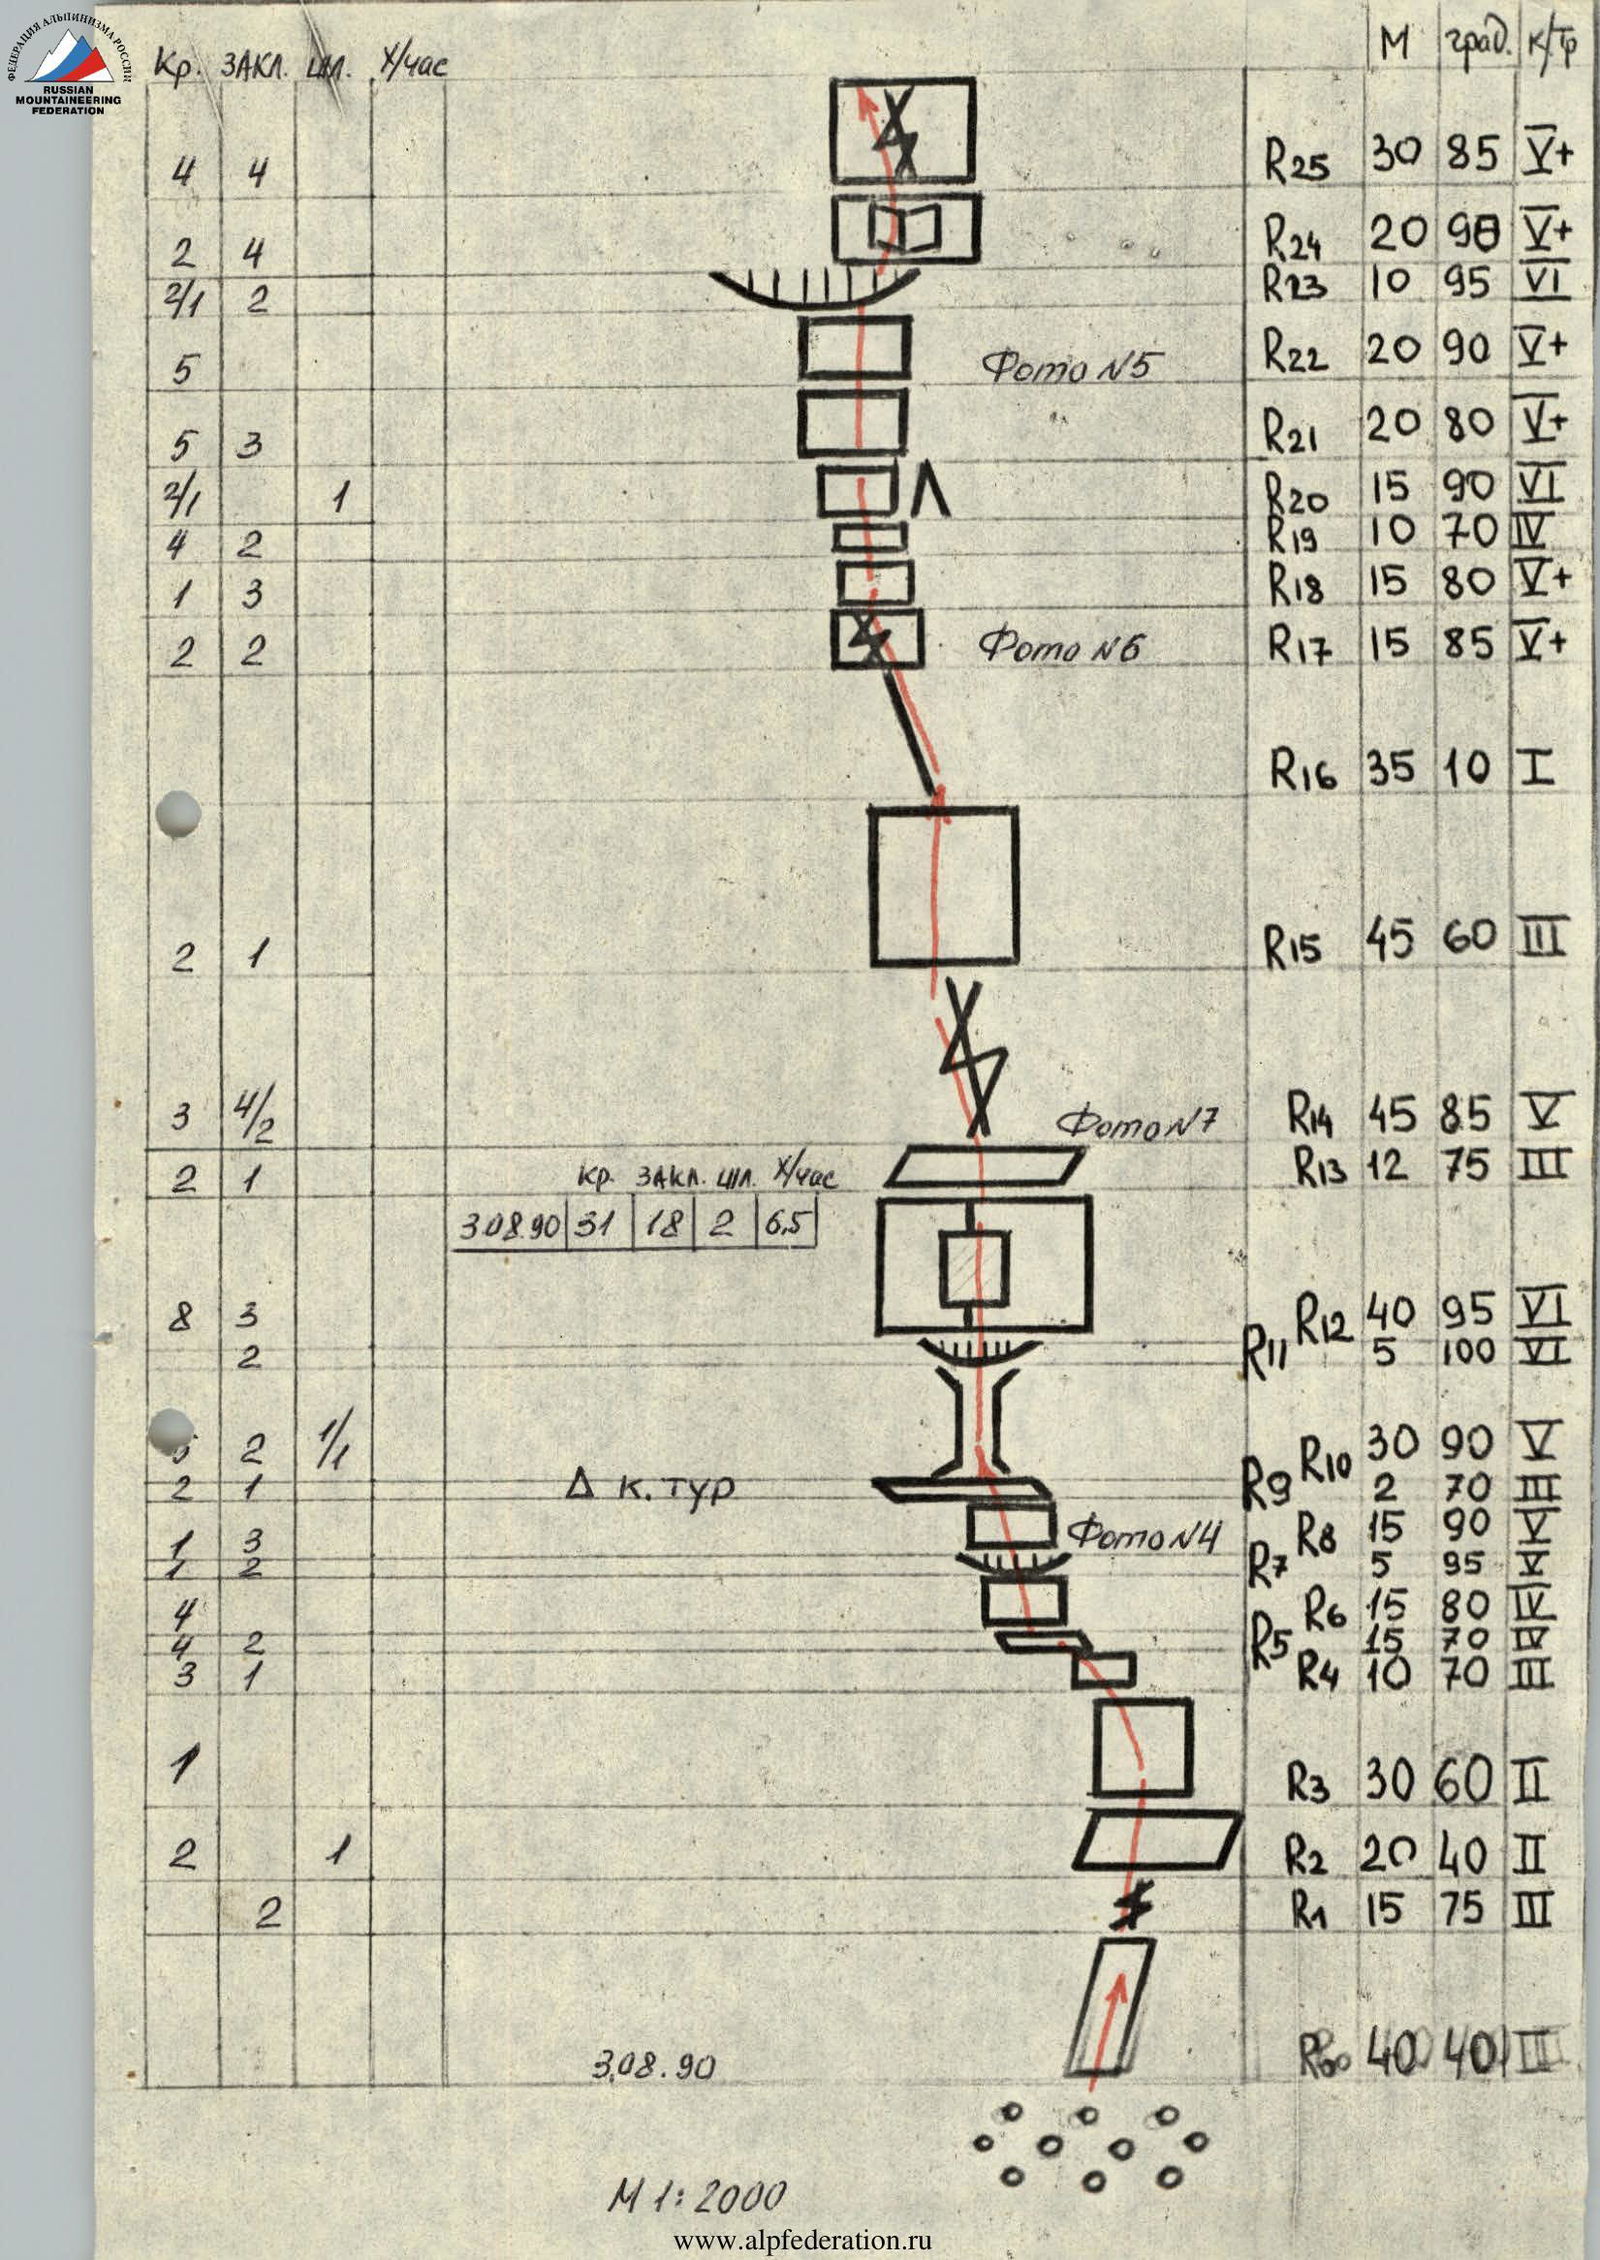 ФЕДЕРАЦИЯ АЛЬПИНИЗМА РОССИИ
RUSSIAN
MOUNTAINEERING
FEDERATION
Кр. ЗАКЛ. шл. Х/час М град. к/тр
4 4 R25 30 85 V+
2 4 R24 20 90 V+
2/1 2 R23 10 95 VI
5 Фото N5 R22 20 90 V+
5 3 R21 20 80 V+
2/1 1 R20 15 90 VI
4 2 R19 10 70 IV
1 3 R18 15 80 V+
2 2 Фото N6 R17 15 85 V+
R16 35 10 I
2 1 R15 45 60 III
3 4/2 Фото N7 R14 45 85 V
2 1 R13 12 75 III
Кр. ЗАКЛ. шл. Х/час
3.08.90 31 18 2 6,5
8 3 R12 40 95 VI
2 R11 5 100 VI
2 1/1 R10 30 90 V
2 1 Δ к. тур R9 2 70 III
1 3 Фото N4 R8 15 90 V
1 2 R7 5 95 V
4 R6 15 80 IV
4 2 R5 15 70 IV
3 1 R4 10 70 III
1 R3 30 60 II
2 1 R2 20 40 II
2 R1 15 75 III
3.08.90 40 40
М 1:2000
www.alpfederation.ru